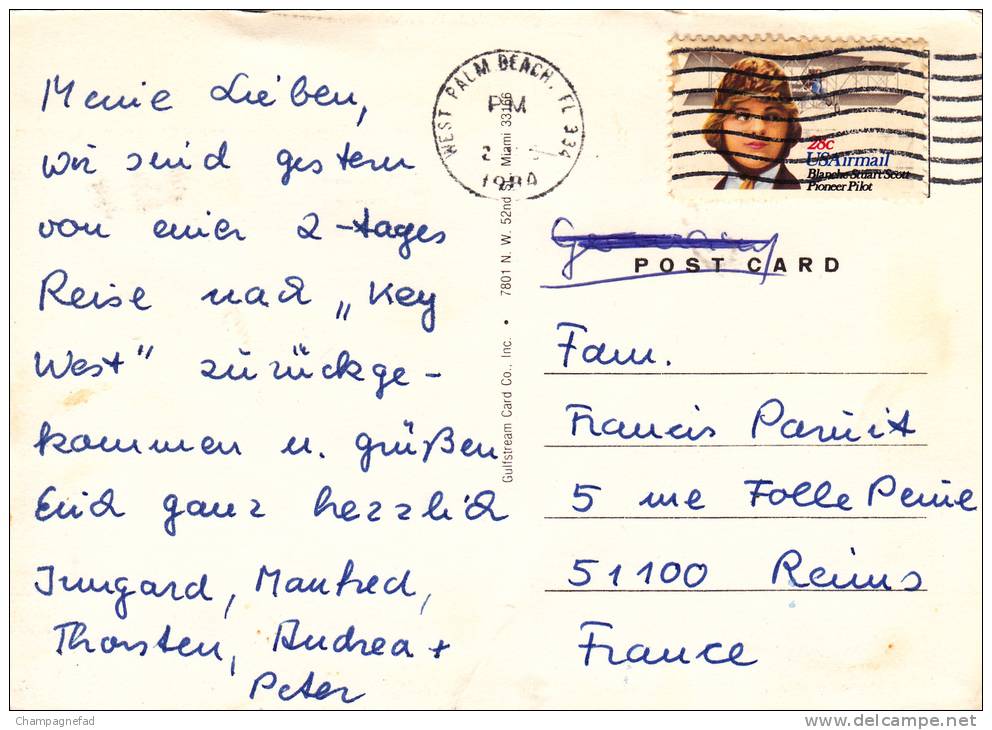 Meine Lieben,
wir sind gestern
von einer 2-tages
Reise nach „Key
West" zurückge-
kommen u. grüßen
Euch ganz herzlich
Irmgard, Manfred,
Thorsten, Andrea +
Peter
Gulfstream Card Co., Inc. • 7801 N. W. 52nd S Miami 33166
WEST PALM BEACH, FL 334
PM
1984
28c
USAirmail
Blanche Stuart Scott
Pioneer Pilot
Germany
POST CARD
Fam.
Francis
5 rue Folle Peine
51100 Reims
France
Champagnefad
delcampe.net